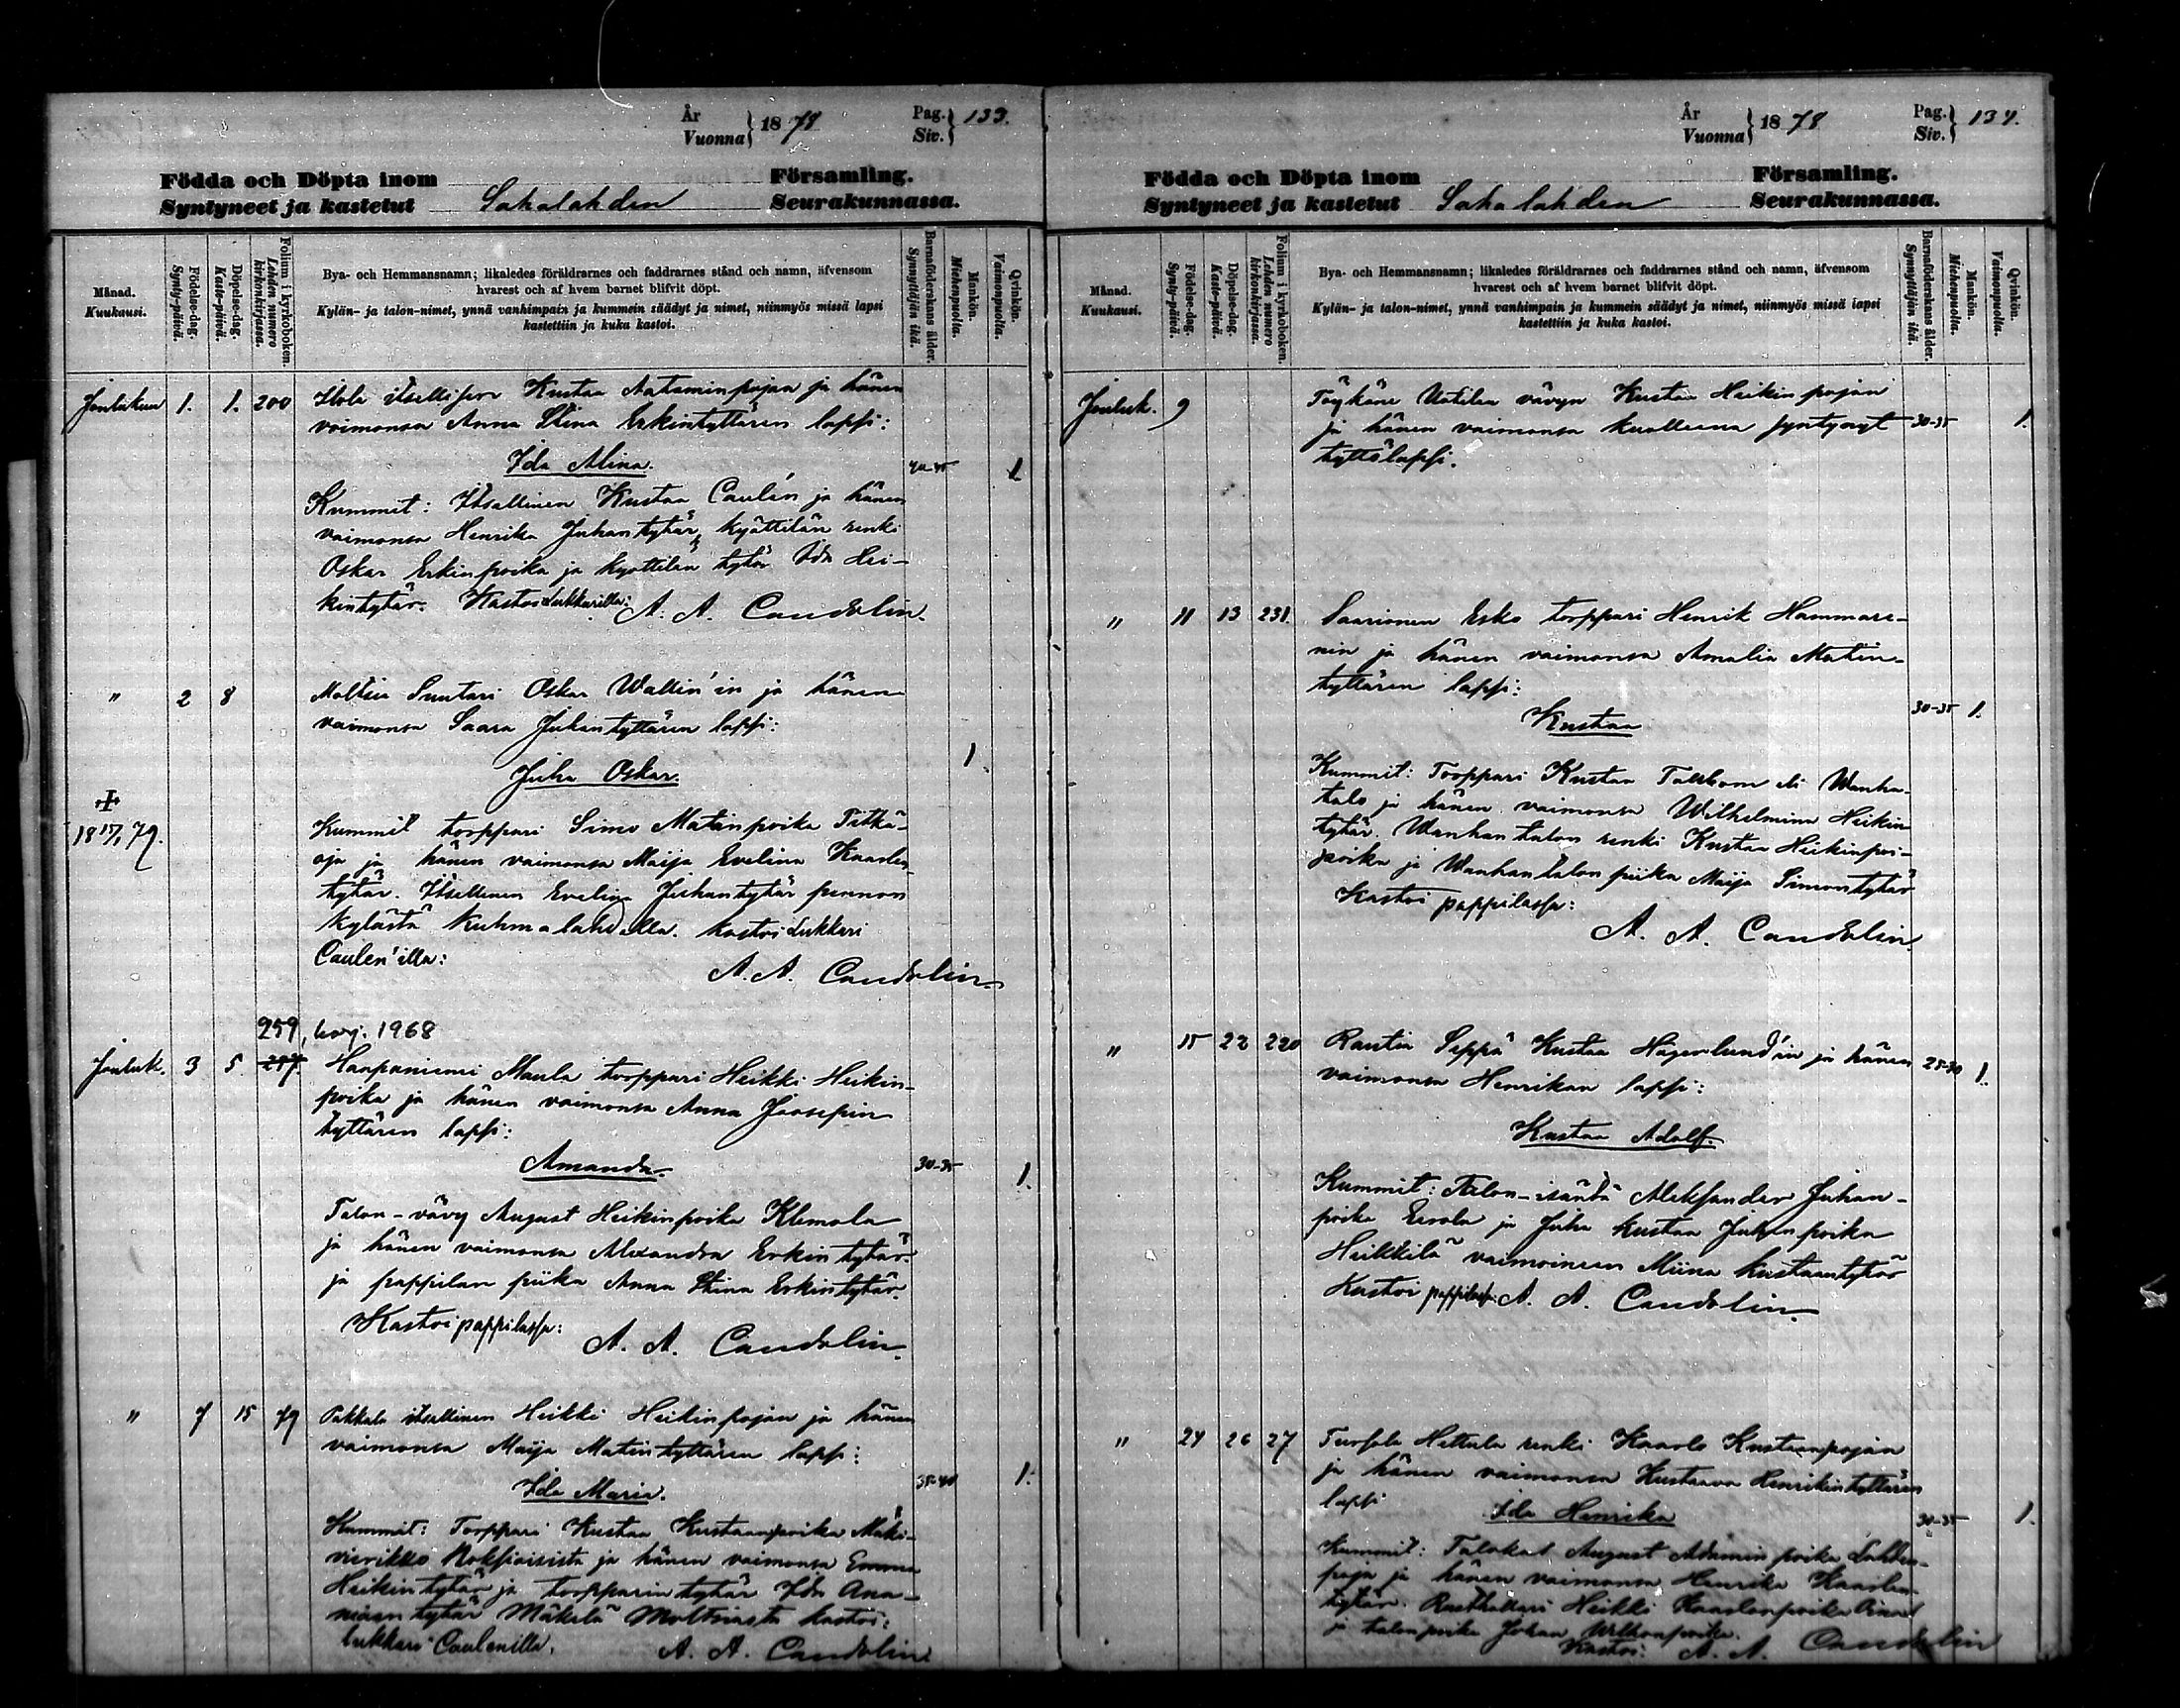 År
Vuonna } 1878 Pag.
Siv. } 133.
Födda och Döpta inom Församling.
Syntyneet ja kastetut Sahalahden Seurakunnassa.
Månad.
Kuukausi.
Födelse-dag.
Synty-päivä.
Döpelse-dag.
Kaste-päivä.
Folium i kyrkoboken.
Lehden numero
kirkonkirjassa.
Bya- och Hemmansnamn; likaledes föräldrarnes och faddrarnes stånd och namn, äfvensom
hvarest och af hvem barnet blifvit döpt.
Kylän- ja talon-nimet, ynnä vanhimpain ja kummein säädyt ja nimet, niinmyös missä lapsi
kastettiin ja kuka kastoi.
Barnaföderskans ålder.
Synnyttäjän ikä.
Mankön.
Miehenpuolta.
Qvinkön.
Vaimonpuolta.
Joulukuu 1. 1. 200 itsellisen Kustaa Aataminpojan ja hänen
vaimonsa Anna Stina Erkintyttären lapsi:
Ida Alina. 1
Kummit: Itsellinen Kustaa Caulén ja hänen
vaimonsa Henrika Juhantytär, Kyöttilän renki
Oskar Erkinpoika ja Kyöttilän tytär Ida Hei-
kintytär. Kastoi Lukkarilla: A. A. Candolin.
" 2 8 Moltsia Suutari Oskar Wallin'in ja hänen
vaimonsa Saara Juhantyttären lapsi:
Juha Oskar. 1
Kummit torppari Simo Matinpoika Pitkä-
oja ja hänen vaimonsa Maija Evelina Kaarlen
tytär. Itsellinen Evelina Juhantytär
kylästä Kuhmalahdella. kastoi Lukkari
Caulen'illa: A. A. Candolin
259, korj. 1968
Jouluk. 3 5 257 Haapaniemi Maula torppari Heikki Heikin-
poika ja hänen vaimonsa Anna Joosepin
tyttären lapsi:
Amanda. 30-35 1.
Talon-vävy August Heikinpoika Klemola
ja hänen vaimonsa Alexandra Erkintytär
ja pappilan piika Anna Stina Erkintytär.
Kastoi pappilassa: A. A. Candolin.
" 7 15 79 Pakkala itsellinen Heikki Heikinpojan ja hänen
vaimonsa Maija Matintyttären lapsi:
Ida Maria. 35-40 1.
Kummit: Torppari Kustaa Kustaanpoika Mäki-
ja hänen vaimonsa Emma
Heikintytär ja torpparin tytär Ida Ana-
niaan tytär Mäkelä Moltsiasta kastoi:
lukkari Caulenilla. A. A. Candolin
År
Vuonna } 1878 Pag.
Siv. } 134.
Födda och Döpta inom Församling.
Syntyneet ja kastetut Sahalahden Seurakunnassa.
Månad.
Kuukausi.
Födelse-dag.
Synty-päivä.
Döpelse-dag.
Kaste-päivä.
Folium i kyrkoboken.
Lehden numero
kirkonkirjassa.
Bya- och Hemmansnamn; likaledes föräldrarnes och faddrarnes stånd och namn, äfvensom
hvarest och af hvem barnet blifvit döpt.
Kylän- ja talon-nimet, ynnä vanhimpain ja kummein säädyt ja nimet, niinmyös missä lapsi
kastettiin ja kuka kastoi.
Barnaföderskans ålder.
Synnyttäjän ikä.
Mankön.
Miehenpuolta.
Qvinkön.
Vaimonpuolta.
Jouluk. 9 Töykäne Uotilan vävyn Kustaa Heikinpojan
ja hänen vaimonsa kuolleena syntynyt 30-35 1.
tyttölapsi.
" 11 13 231. Saarionen Esko torppari Henrik Hammare-
nin ja hänen vaimonsa Amalia Matin-
tyttären lapsi:
Kustaa 30-35 1.
Kummit: Torppari Kustaa eli Wanha-
talo ja hänen vaimonsa Wilhelmina Heikin
tytär. Wanhantalon renki Kustaa Heikinpoi-
poika ja Wanhantalon piika Maija Simontytär
Kastoi pappilassa:
A. A. Candolin
" 15 22 220 Rautia Seppä Kustaa Hagerlund'in ja hänen 25-30 1.
vaimonsa Henrikan lapsi:
Kustaa Adolf.
Kummit: Talon-isäntä Aleksander Juhan-
poika Eerola ja Juha Kustaa Juhanpoika
Heikkilä vaimoineen Miina Kustaantytär
Kastoi pappilassa: A. A. Candolin
" 24 26 27 Tursola Hettula renki Kaarlo Kustaanpojan
ja hänen vaimonsa Kustaava Henrikintyttären
lapsi
Ida Henrika 30-35 1.
Kummit: August Adamin poika
ja hänen vaimonsa Henrika Kaarlen
tytär. Rusthollari Heikki Kaarlonpoika
ja talon poika Johan
Kastoi: A. A. Candolin